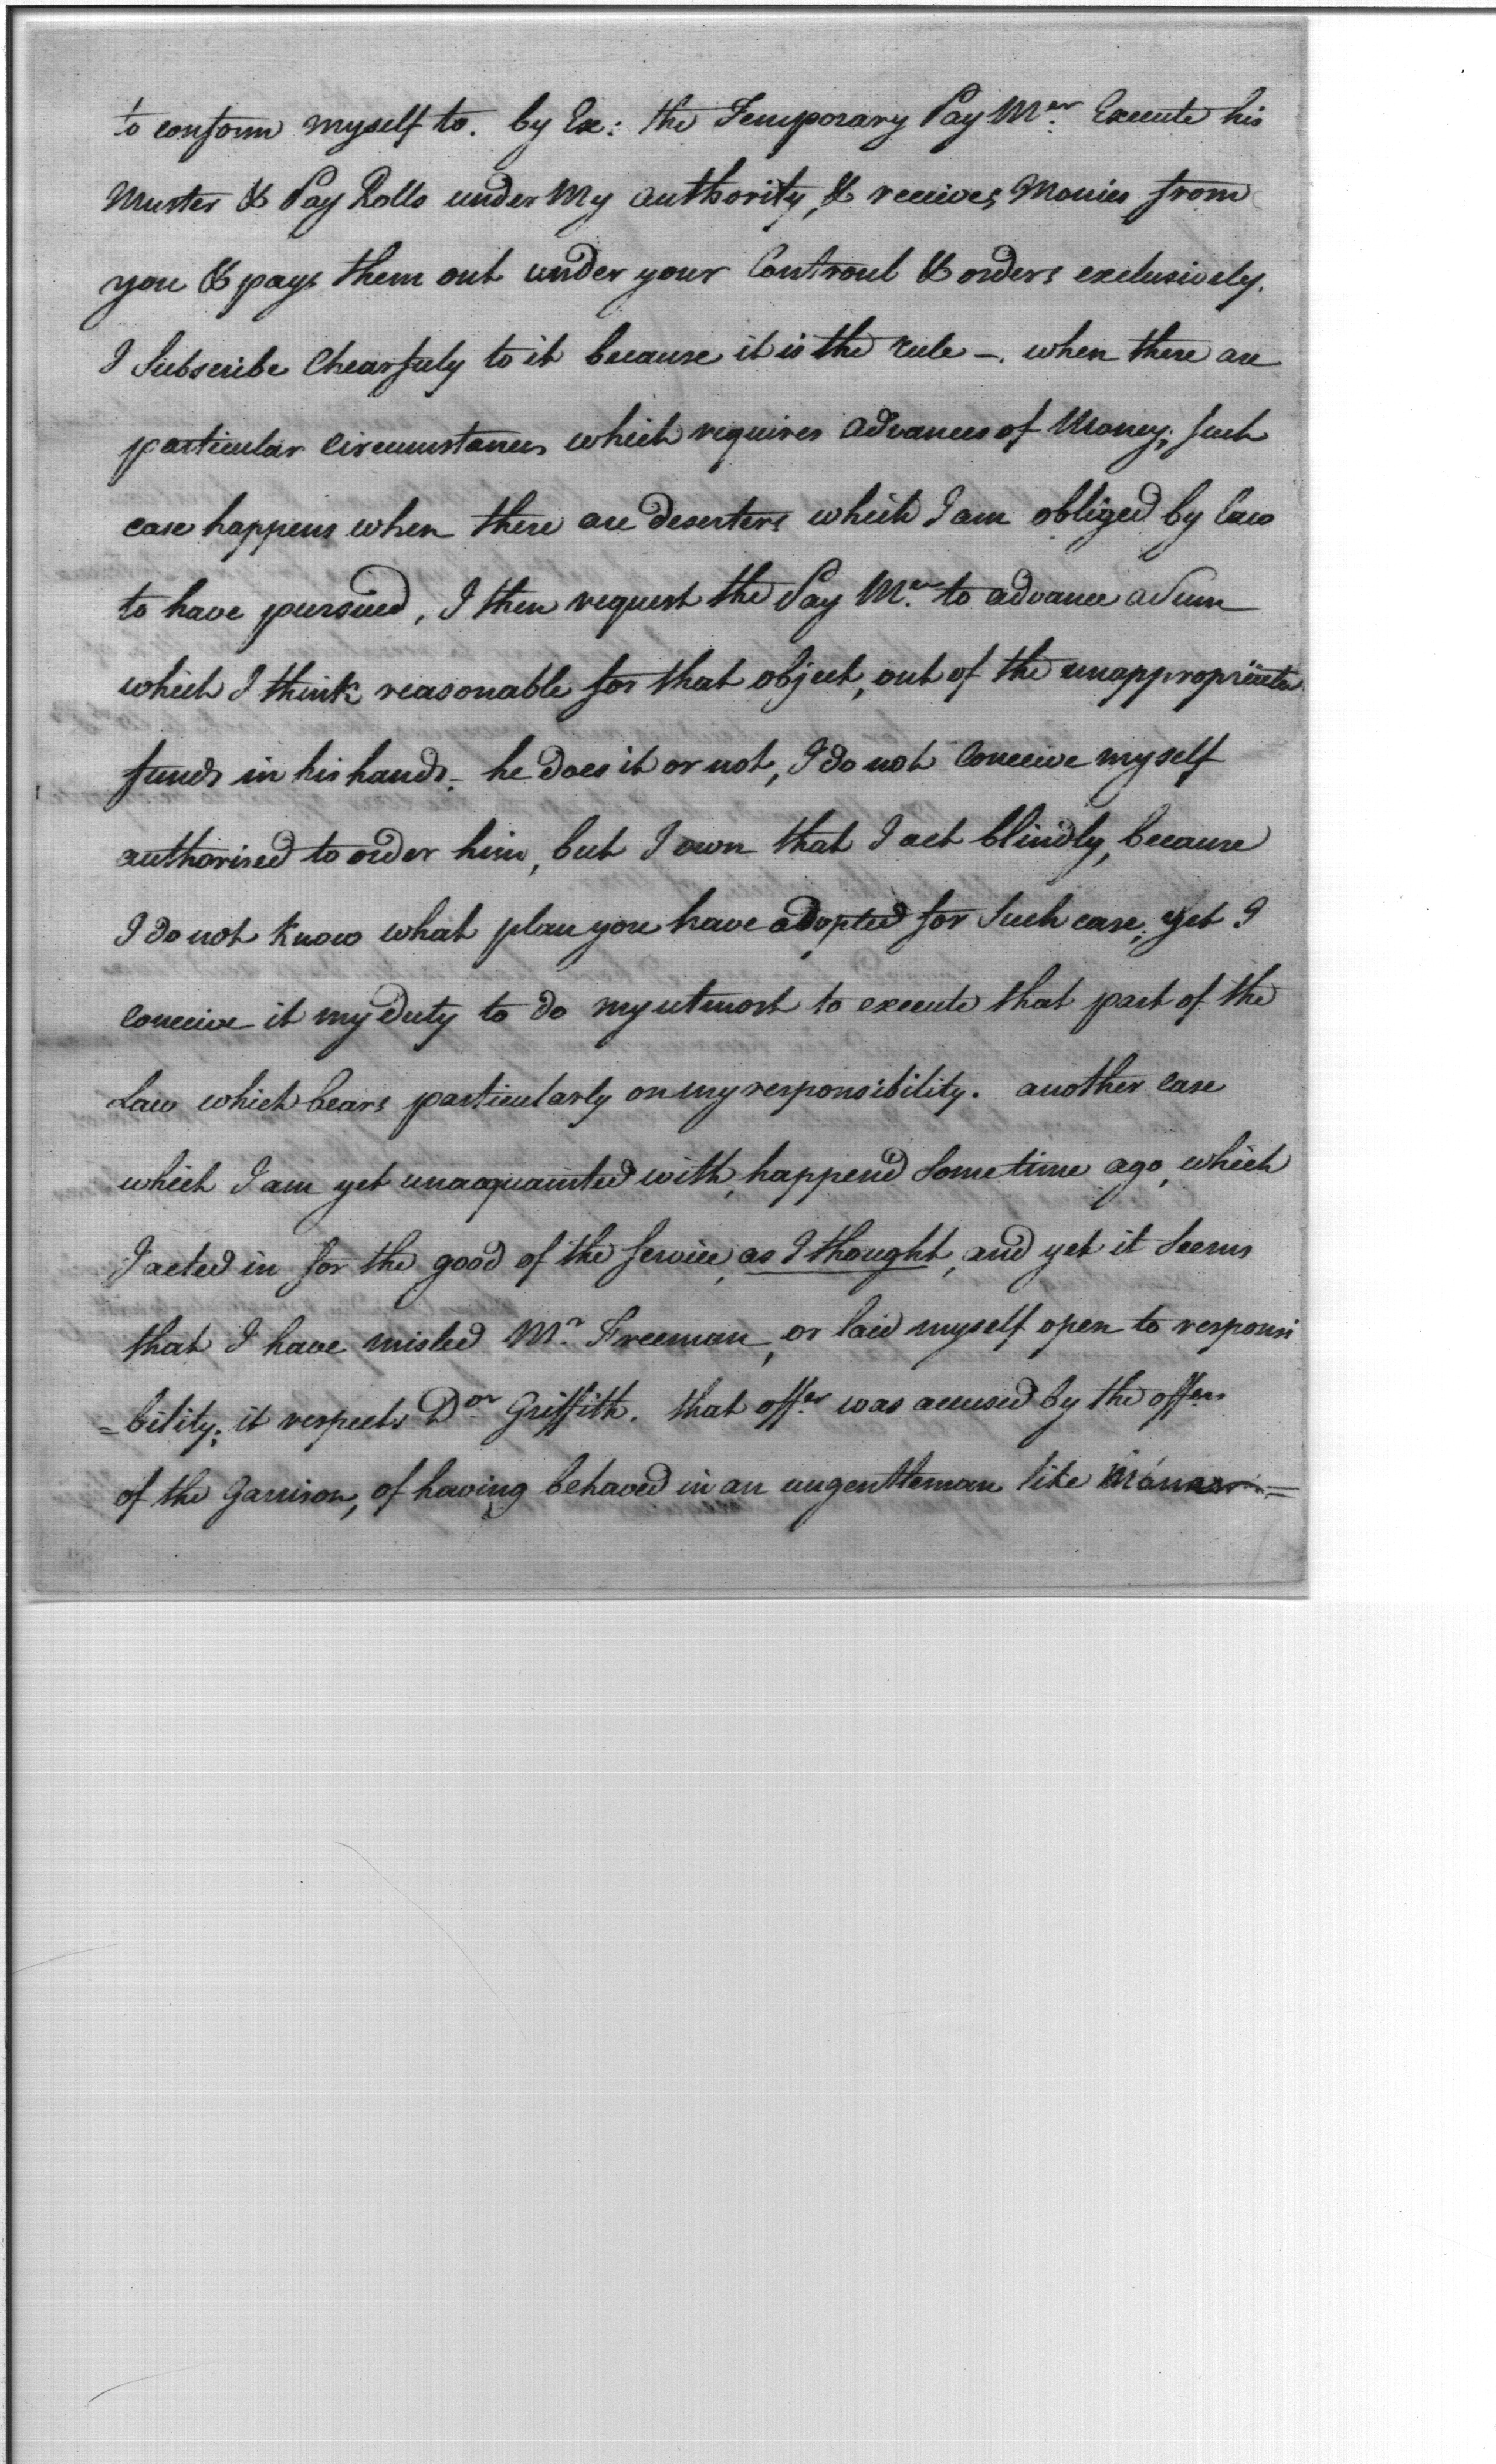 to conform myself to. by Ex: the Temporary Pay Mer. Execute his
Muster & Pay Rolls under My authority, & receives Monies from
you & pays them out under your Controul & orders exclusively.
I Subscribe Chearfuly to it because it is the rule -. when there are
particular Circumstances which requires advances of Money; such
case happens when there are deserters which I am obliged by Law
to have pursued, I then request the Pay Mer. to advance a Sum
which I think reasonable for that object, out of the unappropriate
funds in his hands. he does it or not, I do not Conceive myself
authorised to order him, but I own that I act blindly, because
I do not know what plan you have adopted for Such case; yet I
Conceive it my Duty to do my utmost to execute that part of the
Law which bears particularly on my responsibility. another Case
which I am yet unacquainted with, happend Some time ago, which
I acted in for the good of the Service, as I thought, and yet it Seems
that I have misled Mr. Freeman, or laid myself open to responsi
=bility; it respects Dor. Griffith. that offer. was accused by the offers
of the Garrison, of having behaved in an ungentleman like Manner=